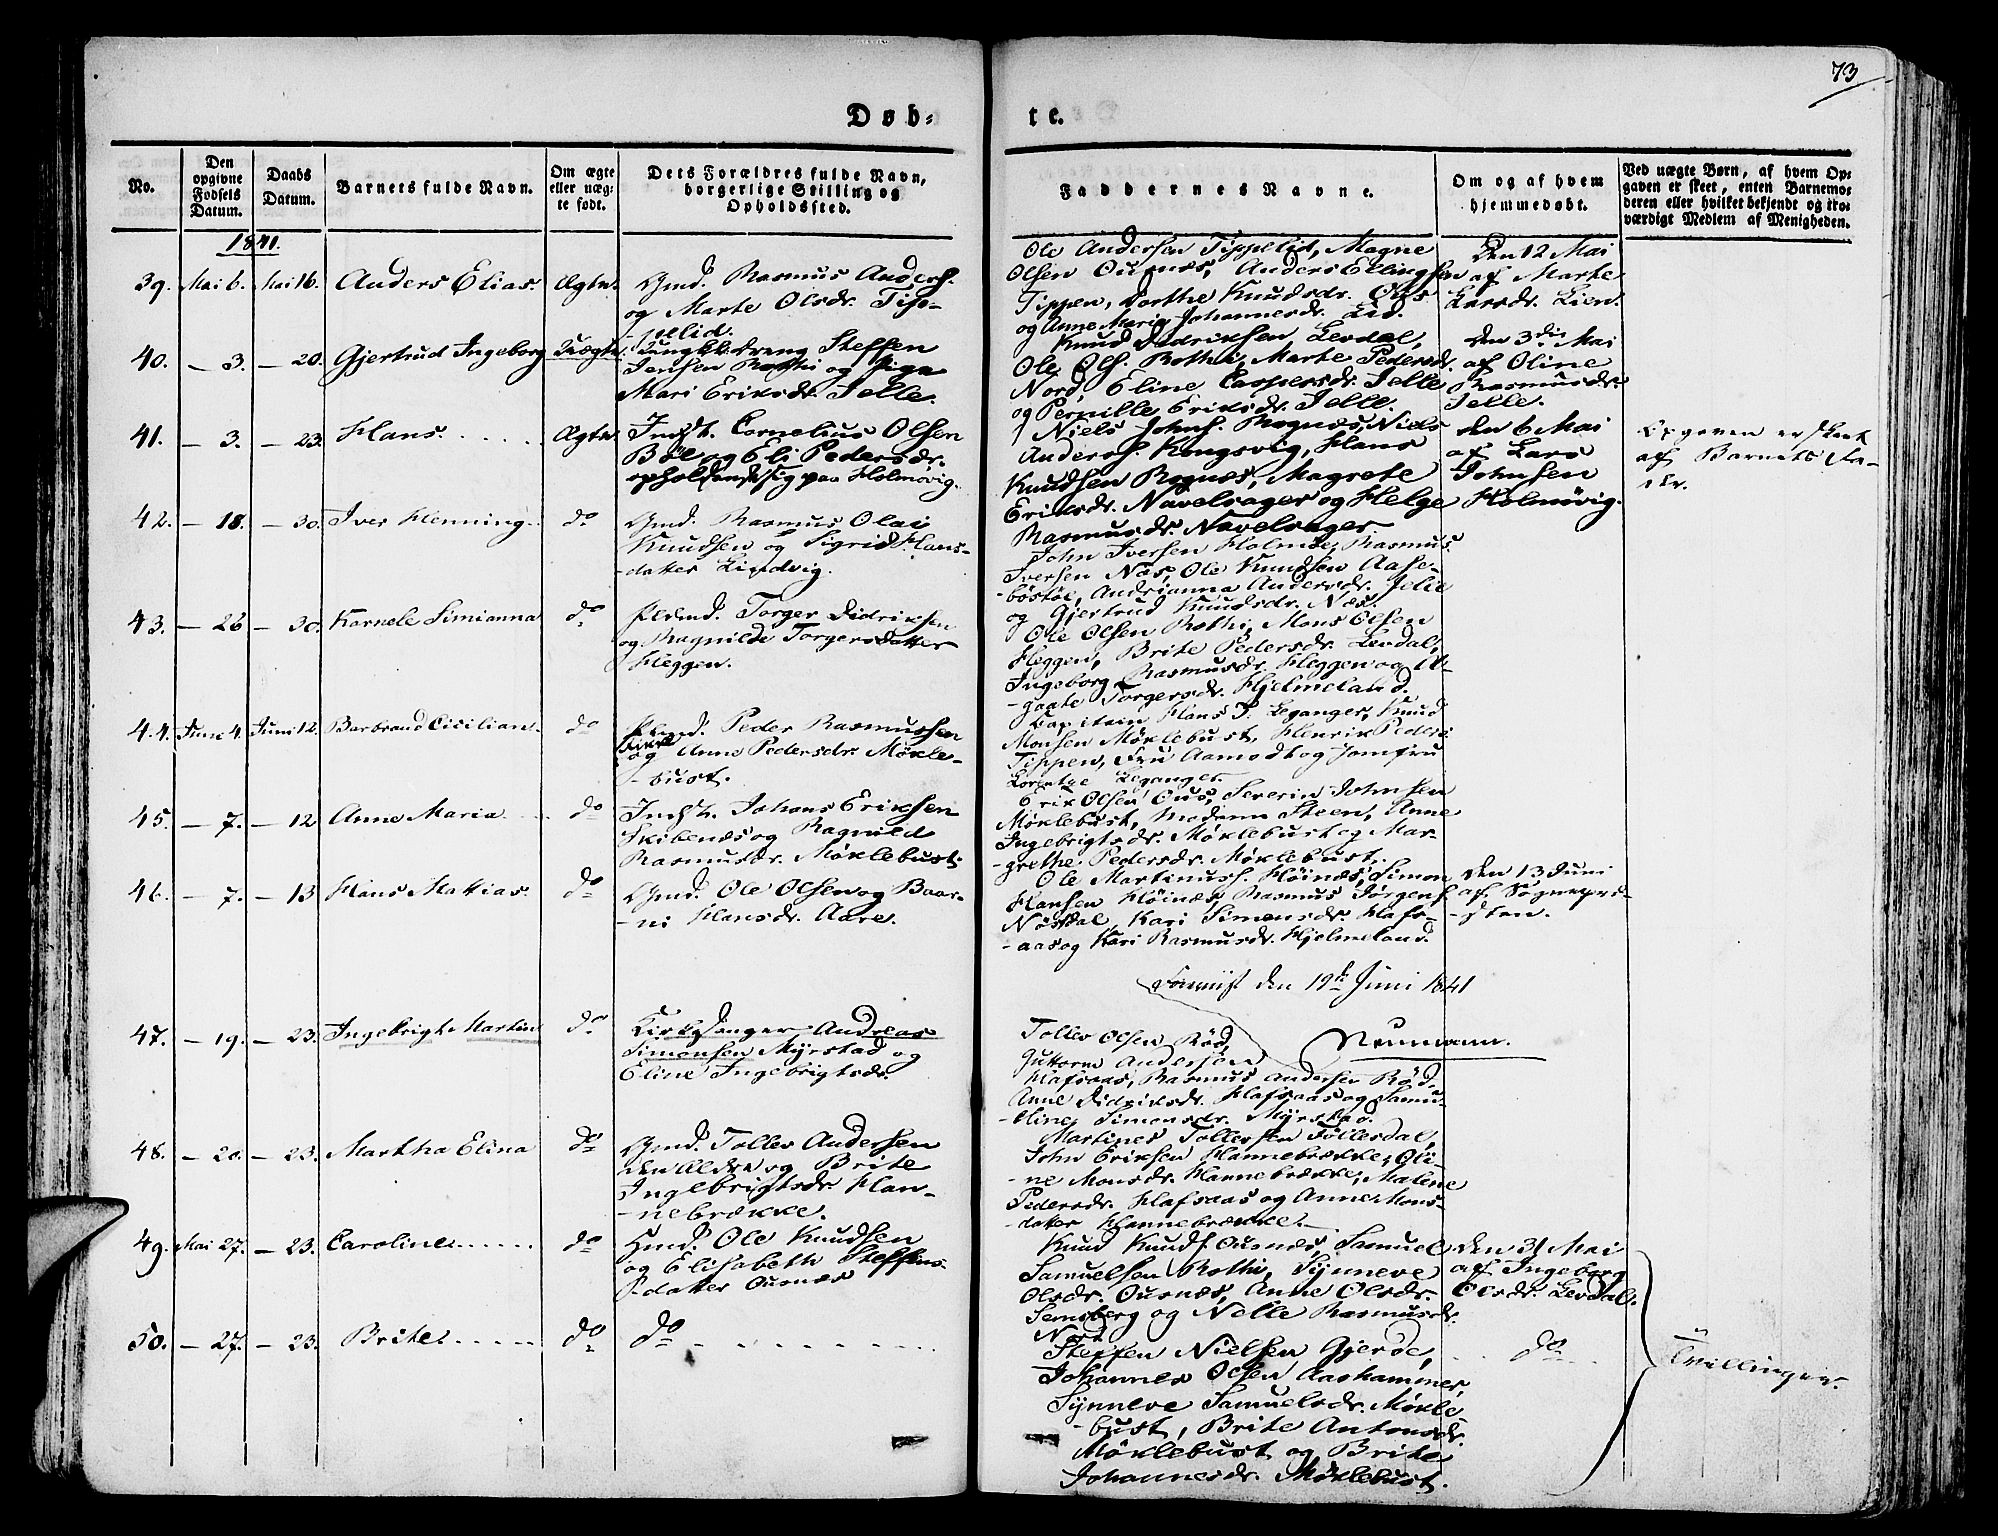 73
Døb-
te.
No.
Den
opgivne
Fødsels
Datum.
Daabs
Datum.
Barnets fulde Navn.
Om ægte
eller uæg-
te født.
Dets Forældres fulde Navn,
borgerlige Stilling og
Opholdssted.
Faddernes Navne.
Om og af hvem
hjemmedøbt.
Ved uægte Børn, af hvem Op-
gaven er skeet, enten Barnemo-
deren eller hvilket bekjendt og tro-
værdigt Medlem af Menigheden.
1841.
39. Mai 6. Mai 16. Anders Elias. Ægte.
Gmd. Rasmus Anders.
og Marte Olsdr. Tip-
pelid.
Ole Andersen Tippelid, Magne
Olsen Ousnæs, Anders Ellingsen
Tippen, Dorthe Knudsdr. Ous
og Anne Maria Johannesdr. Lid.
Den 12 Mai
af Marte
Larsdr. Lien.
40. — 3. — 20. Gjertrud Ingeborg Uægte.
Ungk. Steffen
Jensen Rothi og Pige
Mari Eriksdr. Jelle.
Knud Didriksen Levdal,
Ole Ols. Rothi, Marte Pedersd.
Nord, Eline Caspersdr. Jelle
og Pernille Eriksdr. Jelle.
den 3die Mai
af Oline
Rasmusdr.
Jelle.
41. — 3. — 23. Hans. Ægte.
Indst. Cornelius Olsen
Böl og Eli Pedersdr.
opholdende sig paa Holmövig.
Niels Johns. Rognæs, Niels
Anders. Kongsvig, Hans
Knudsen Rognæs, Magrete
Eriksdr. Navelsager og Helge
Rasmusdr. Navelsager
den 6 Mai
af Lars
Johnsen
Holmövig.
Opgaven er skeet
af Barnets Fa-
der.
42. — 18. — 30. Iver Henning. do
Gmd. Rasmus Olai
Knudsen og Sigrid Hans-
-datter Lindvig.
John Iversen Holmöe, Rasmus
Iversen Næs, Ole Knudsen Aase-
-böstöe, Andrianna Andersdr. Jelle
og Gjertrud Knudsdr. Næs.
43. — 26 — 30. Karnele Simianna do
Pldmd. Torger Didriksen
og Ragnilde Torgersdatter
Heggen.
Ole Olsen Rothi, Mons Olsen
Heggen, Brite Pedersdr. Levdal,
Ingeborg Rasmusdr. Heggen og A-
-gaate Torgersdr. Hjelmeland.
44. Juni 4. Juni 12. Barbraud Cicilian. do
Peder Rasmussen
og Anne Pedersdr. Mökle-
-bust.
Capitain Hans P. Leganger, Knud
Monsen Möklebust, Henrik Peders
Tippen, Fru Aamodt og Jomfru
Lorentze Leganger.
45. — 7. — 12 Anne Maria do
Indst. Johans Eriksen
Skibenæs og Ragnild
Rasmusdr. Möklebust.
Erik Olsen Ous, Severin Johnsen
Möklebust, Madame Steen, Anne
Ingebrigtsdr. Möklebust og Mar-
-grethe Pedersdr. Möklebust.
46. — 7. — 13 Hans Mattias. do
Gmd. Ole Olsen og Baar-
-ni Hansdr. Aare.
Ole Martinuss. Höinæs, Simon
Hansen Höinæs, Rasmus Jörgens.
Nösdal, Kari Simonsdr. Hafs-
-aas og Kari Rasmusdr. Hjelmeland.
den 13 Juni
af Sognepræ-
-sten.
den 19de Juni 1841
Neumann.
47. — 19. — 23. Ingebrigt Martin do
Kirkesanger Andreas
Simonsen Myrstad og
Eline Ingebrigtsdr.
Tollev Olsen Röd,
Guttorm Andersen
Hafsaas, Rasmus Andersen Röd,
Anne Didriksdr. Hafsaas og Samu-
-eline Simonsdr. Myrstad.
48. — 20. — 23. Martha Elina do
Gmd. Tollev Andersen
den Ældre og Brite
Ingebrigtsdr. Han-
-nebrække.
Martines Tollevsen Tollesdal,
John Eriksen Hannebrække, Oli-
-ne Monsdr. Hannebrække, Malene
Pedersdr. Hafsaas og Anne Mons-
-datter Hannebrække.
49. Mai 27. — 23. Caroline do
Gmd. Ole Knudsen
og Elisabeth Steffens-
-datter Ousnæs
Knud Knuds. Ousnæs, Samuel
Samuelsen Rothi, Synneve
Olsdr. Ousnæs, Anne Olsdr.
Semsberg og Nelle Rasmusdr.
Nord
den 31 Mai
af Ingeborg
Olsdr. Levdal.
50. — 27. — 23. Brite do
do
Steffen Nielsen Gjerde,
Johannes Olsen Aashammer,
Synneve Samuelsdr. Mökle-
-bust, Brite Antonsdr.
Möklebust og Brite
Johannesdr. Möklebust.
do
Tvillinger.